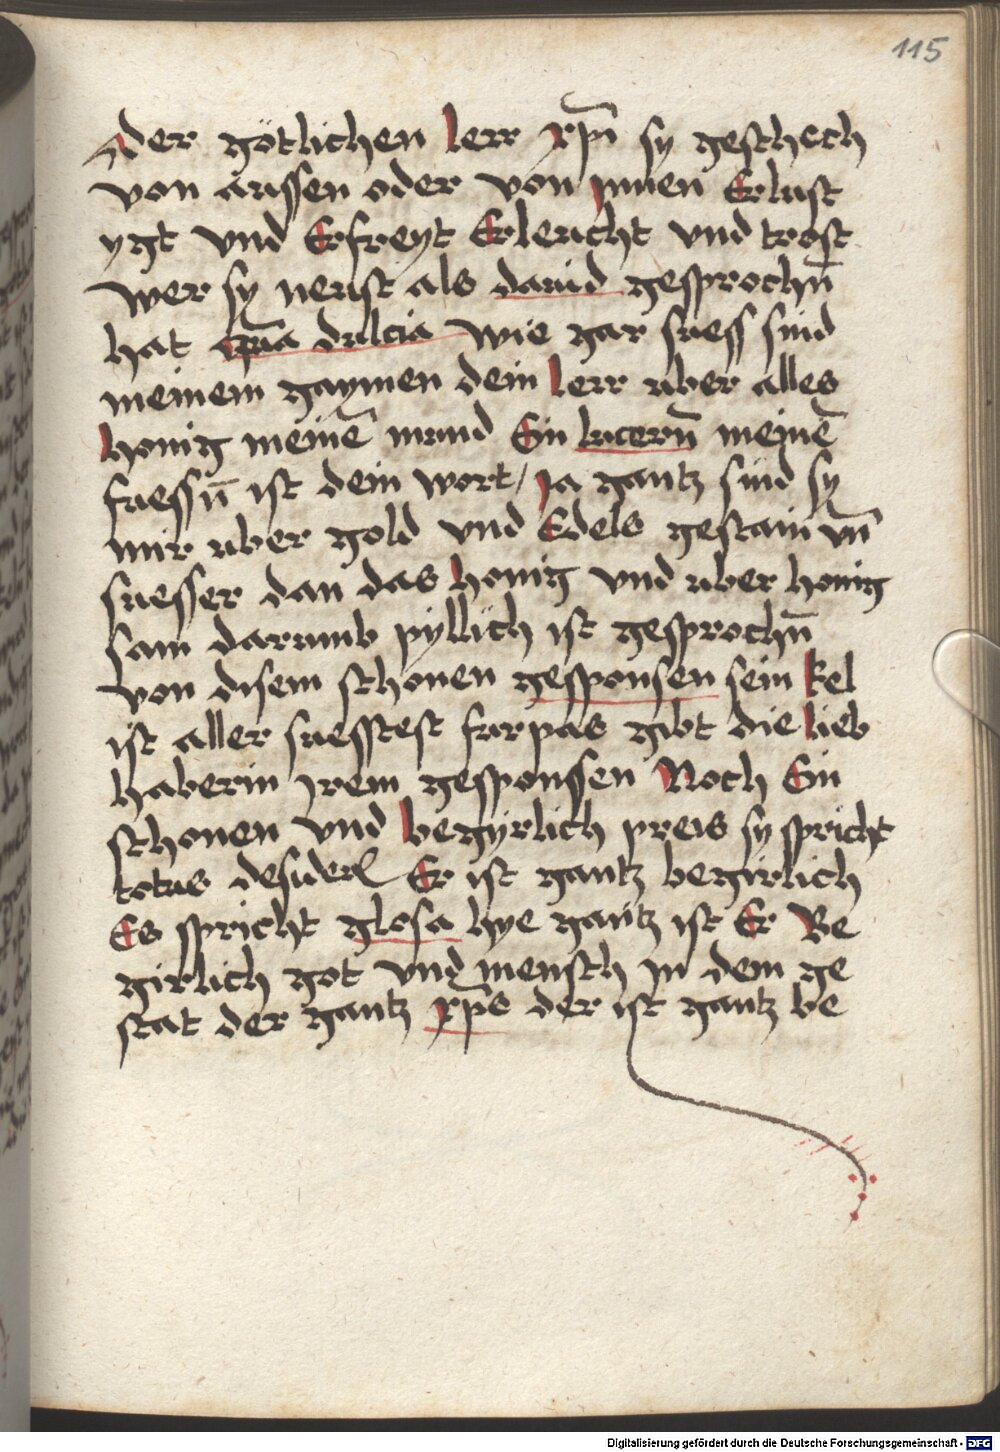 115
der götlichen lerr xp̄i sy geschech
von aussen oder von jnnen Erlust
ygt vnd Erfreyt Erleucht vnd trost
wer sy neust als dauid gesprochn̄
hat q̄m dulcia wie gar suess sind
meinem gaymen dein lerr vber alles
honig meinē mund Ein lucern̄ meinē
fuessn̄ ist dein wort / ja gantz sind sy
mir vber gold vnd Edels gestain vn̄
suesser dan das honig vnd vber honig
sam darumb pyllich ist gesprochn̄
von disem schonen gesponsen sein kel
ist aller suessest furpas gibt die lieb
haberin jrem gesponssen Noch Ein
schonen vnd begyrlich preis sy spricht
totus desiderl Er ist gantz begirlich
Es spricht glosa hye gantz ist Er Be
girlich got vnd mensch jn dem ge
stat der gantz xp̄s der ist gantz be
Digitalisierung gefördert durch die Deutsche Forschungsgemeinschaft - DFG